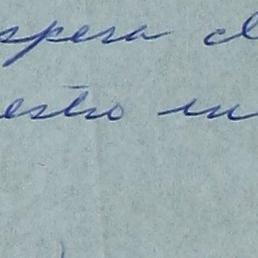 spera d
estro en